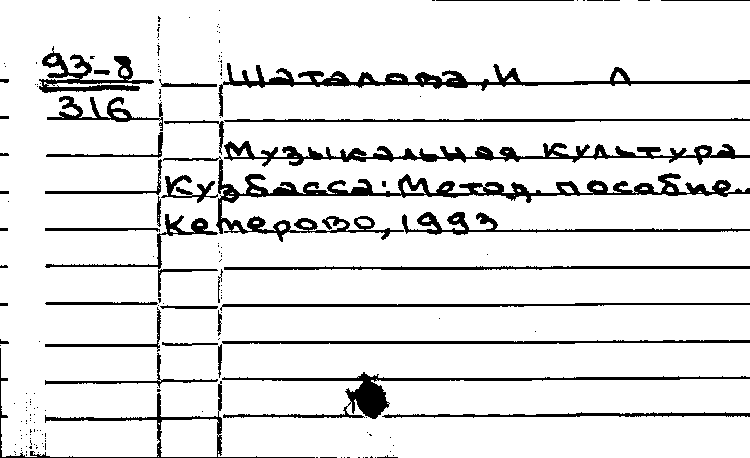 93-8 Шаталова, И Л
316
Музыкальная культура
Кузбасса: Метод. пособие.
Кемерово, 1993